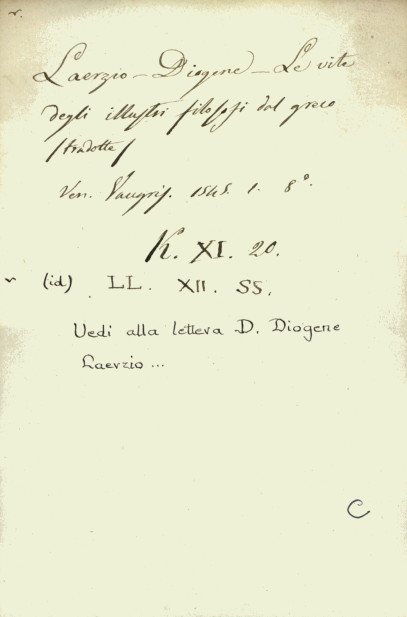 v.
Laerzio - Diogene - Le vite
degli illustri filosofi dal greco
/ tradotte /
Ven. Vaugris. 1545. 1. 8°.
K. XI. 20.
v (id) LL. XII. 55.
Vedi alla lettera D. Diogene
Laerzio ...
C